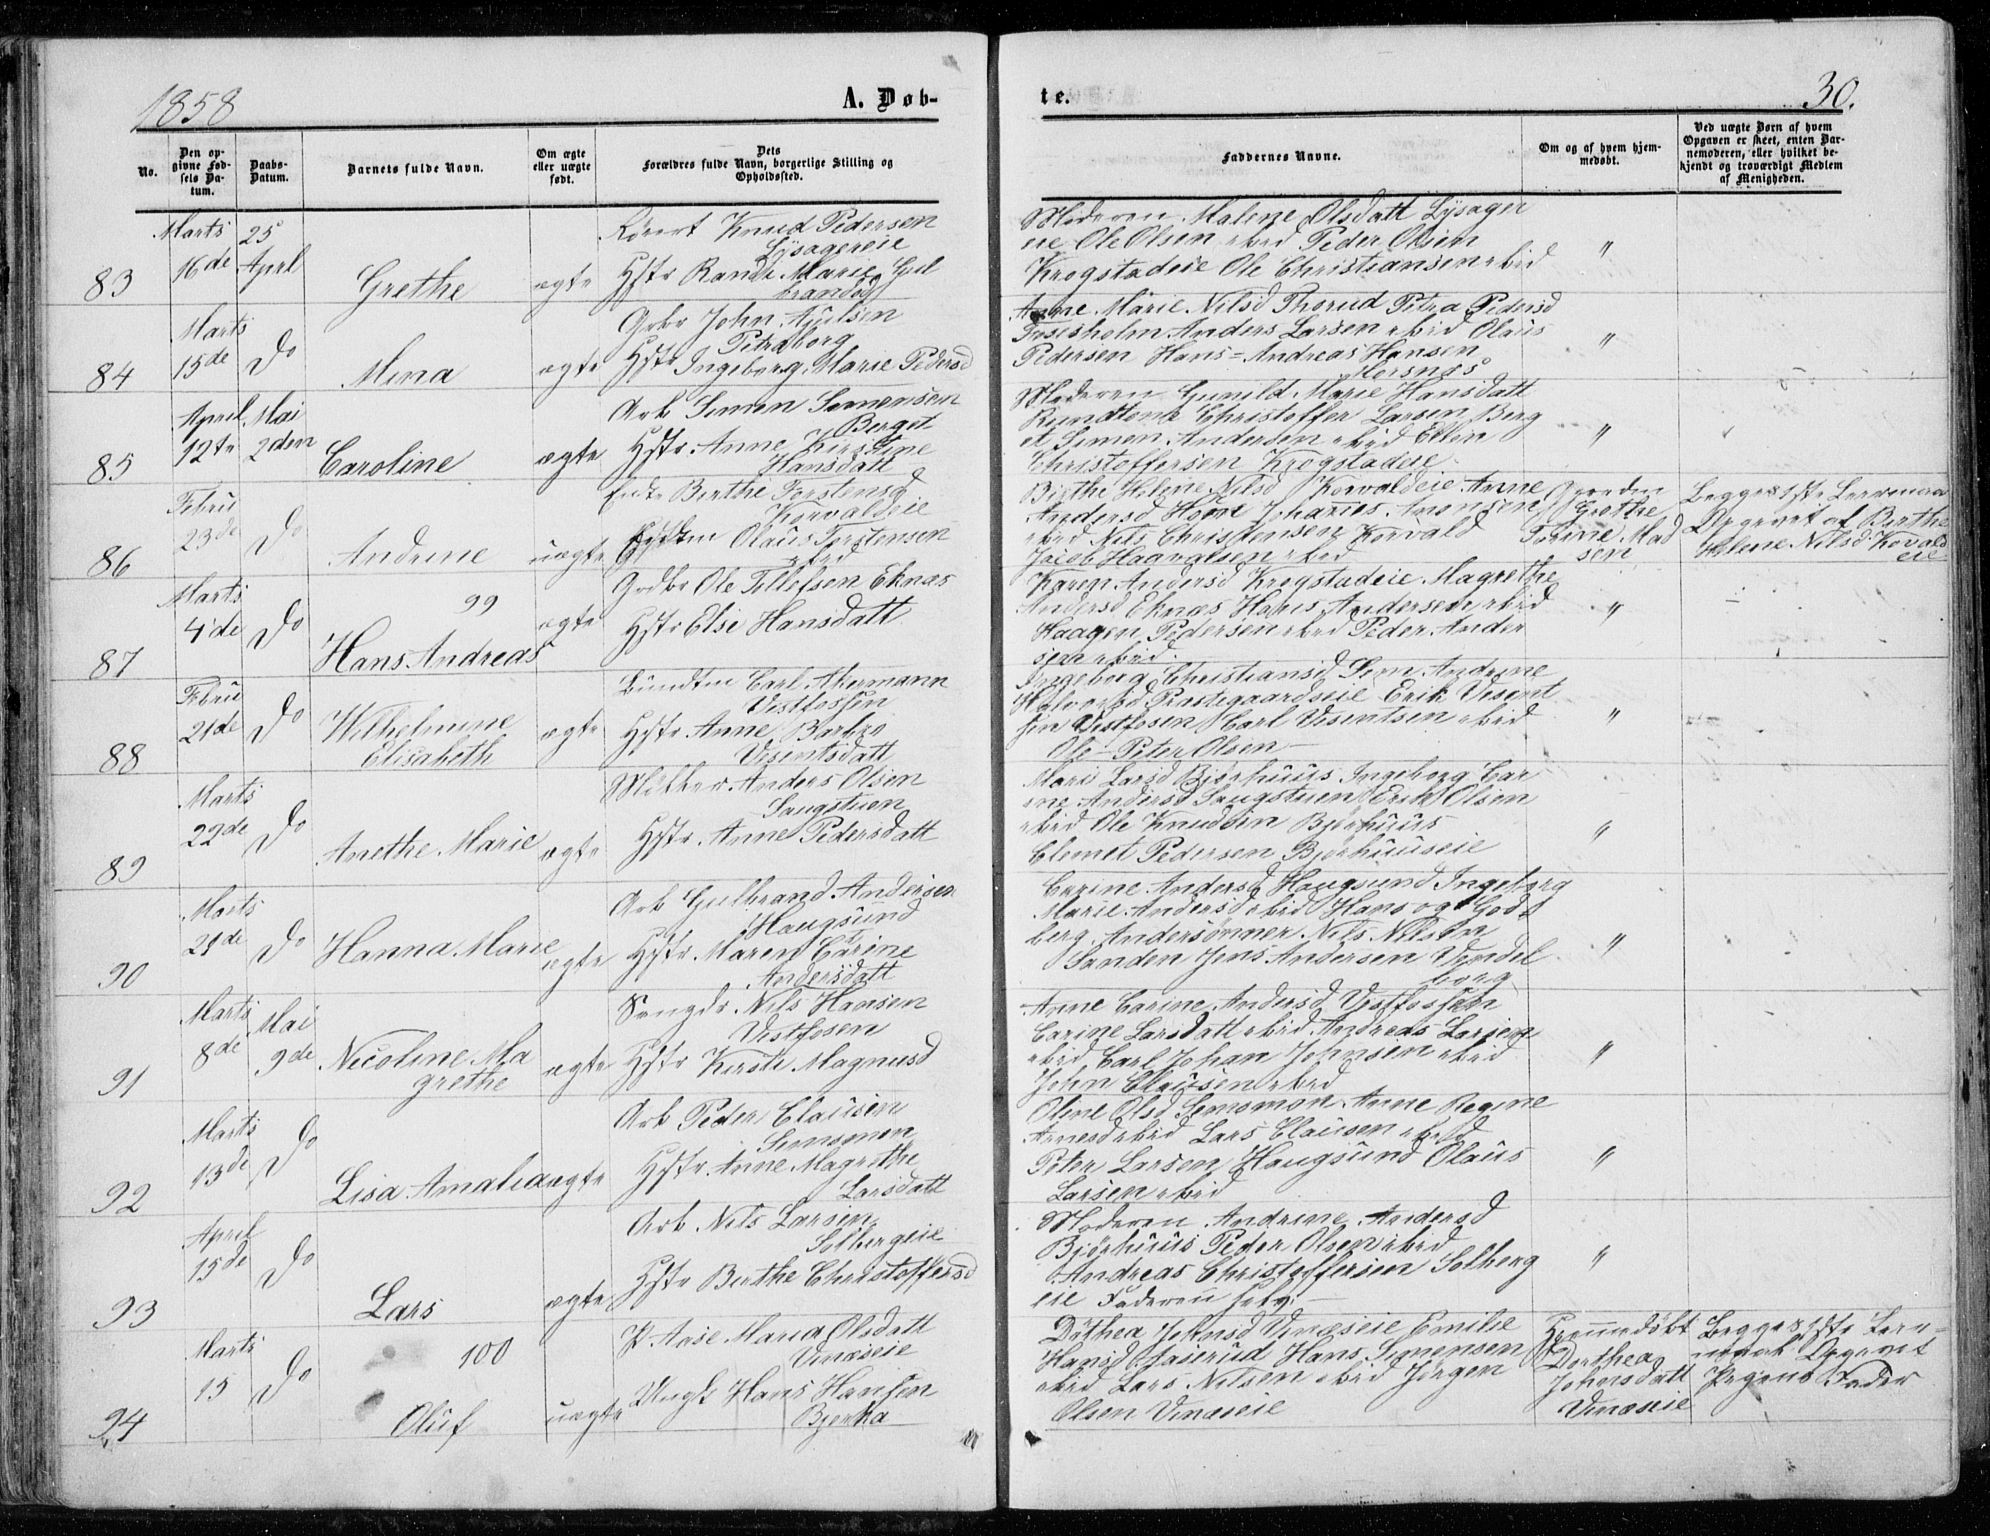 1858
A. Døb-
te.
30.
No.
Den op-
givne Fød-
sels Da-
tum.
Daabs-
Datum.
Barnets fulde Navn.
Om ægte
eller uægte
født.
Dets
Forældres fulde Navn, borgerlige Stilling og
Opholdssted.
Faddernes Navne.
Om og af hvem hjem-
medøbt.
Ved uægte Børn af hvem
Opgaven er skeet, enten Bar-
nemoderen, eller hvilket be-
kjendt og troværdigt Medlem
af Menigheden.
83
Marts
16de
25
April
Grethe
ægte
Knud Pedersen
Lÿsagereie
Hstr Randi Marie Gul
brandsd
Moderen Malene Olsdatt Lÿsager
eie Ole Olsen ibid Peder Olsen
Krogstadeie Ole Christiansen ibid
"
84
Marts
15de
Do
Mina
ægte
Grbr John Ajülsen
Petraborg
Hstr Ingeborg Marie Pedersd
Anne Marie Nilsd Thorud Petra Pedersd
Fossesholm Anders Larsen ibid Olaüs
Pedersen Hans-Andreas Hansen
Horsnæs
"
85
April
12te
Mai
2den
Caroline
ægte
Arb Simen Simensen
Berget
Hstr Anne Kirstine
Hansdatt
Moderen Gunild Marie Hansdatt
Christoffer Larsen Berg
et Simen Andersen ibid Ellen
Christoffersen Krogstadeie
"
86
Febru
23de
Do
Andrine
uægte
Birthe Torstensd
Korvaldeie
Olaüs Torstensen
ibid
Birthe Helene Nilsd Korvaldeie Anne
Andersd Hoen Johanes Aronsen
ibid Nils Christensen Korvald
Jacob Haavalsen ibid
Grethe
Torine Mad
sen
Begges 1ste Leiermaal
Opgivet af Birthe
Helene Nilsd Kovald
eie
87
Marts
4de
Do
99
Hans Andreas
ægte
Gdbr Ole Tollefsen Eknæs
Hstr Else Hansdatt
Karen Andersd Krogstadeie Magrethe
Andersd Eknæs Hans Andersen ibid
Haagen Pedersen ibid Peder Ander
sen ibid.
"
88
Febru
21de
Do
Wilhelmine
Elisabeth
ægte
Bundtm Carl Akermann
Vestfossen
Hstr Anne Barbro
Vesentsdatt
Ingeborg Christiansd Sem Andrine
Halvorsd Præstegaardseie Erik Vesent
sen Vestfossen Carl Vesentsen ibid
Ole-Peter Olsen
"
89
Marts
22de
Do
Anethe Marie
ægte
Møller Anders Olsen
Saugstuen
Hstr Anne Pedersdatt
Mari Larsd Bjørhuus Ingeborg Car
ine Andersd Saugstuen Erik Olsen
ibid Ole Knudsen Bjørhuus
Clemet Pedersen Bjørhuuseie
"
90
Marts
21de
Do
Hanna Marie
ægte
Arb Gulbrand Andersen
Haugsund
Hstr Maren Carine
Andersdatt
Carine Andersd Haugsund Ingeborg
Marie Andersd ibid Hans og God
berg Andersønner Nils Nilsen
Sanden Jens Andersen Vendel
borg
"
91
Marts
8de
Mai
9de
Nicoline Ma
grethe
ægte
Nils Hansen
Vestfosen
Hstr Kirsti Magnusd
Anne Carine Andersd Vestfossen
Carine Larsdatt ibid Andreas Larsen
ibid Carl Johan Johnsen ibid
John Claüsen ibid
"
92
Marts
13de
Do
Lisa Amalia
ægte
Arb Peder Claüsen
Semsmoen
Hstr Anne Magrethe
Larsdatt
Oline Olsd Semsmoen Anne Regine
Arnesd ibid Lars Clausen ibid
Peter Larsen Haugsund Olaüs
Larsen ibid
"
93
April
15de
Do
Lars
ægte
Arb Nils Larsen
Solbergeie
Hstr Birthe Christoffersd
Moderen Andrine Andersd
Bjørhuus Peder Olsen ibid
Andreas Christoffersen Solberg
eie Faderen selv
"
94
Marts
15
Do
100
Oluf
uægte
P Aase Maria Olsdatt
Vinæseie
Ungk Hans Hansen
Bjerka
Dothea Johnsd Vinæseie Emilie
Hansd Aaserud Hans Simensen
ibid Lars Nilsen ibid Jørgen
Olsen Vinæseie
Hjemmedøbt
Dorthea
Johnsdatt
Vinæseie
Begges 1ste Leier-
maal Opgivet
Pigens Fader